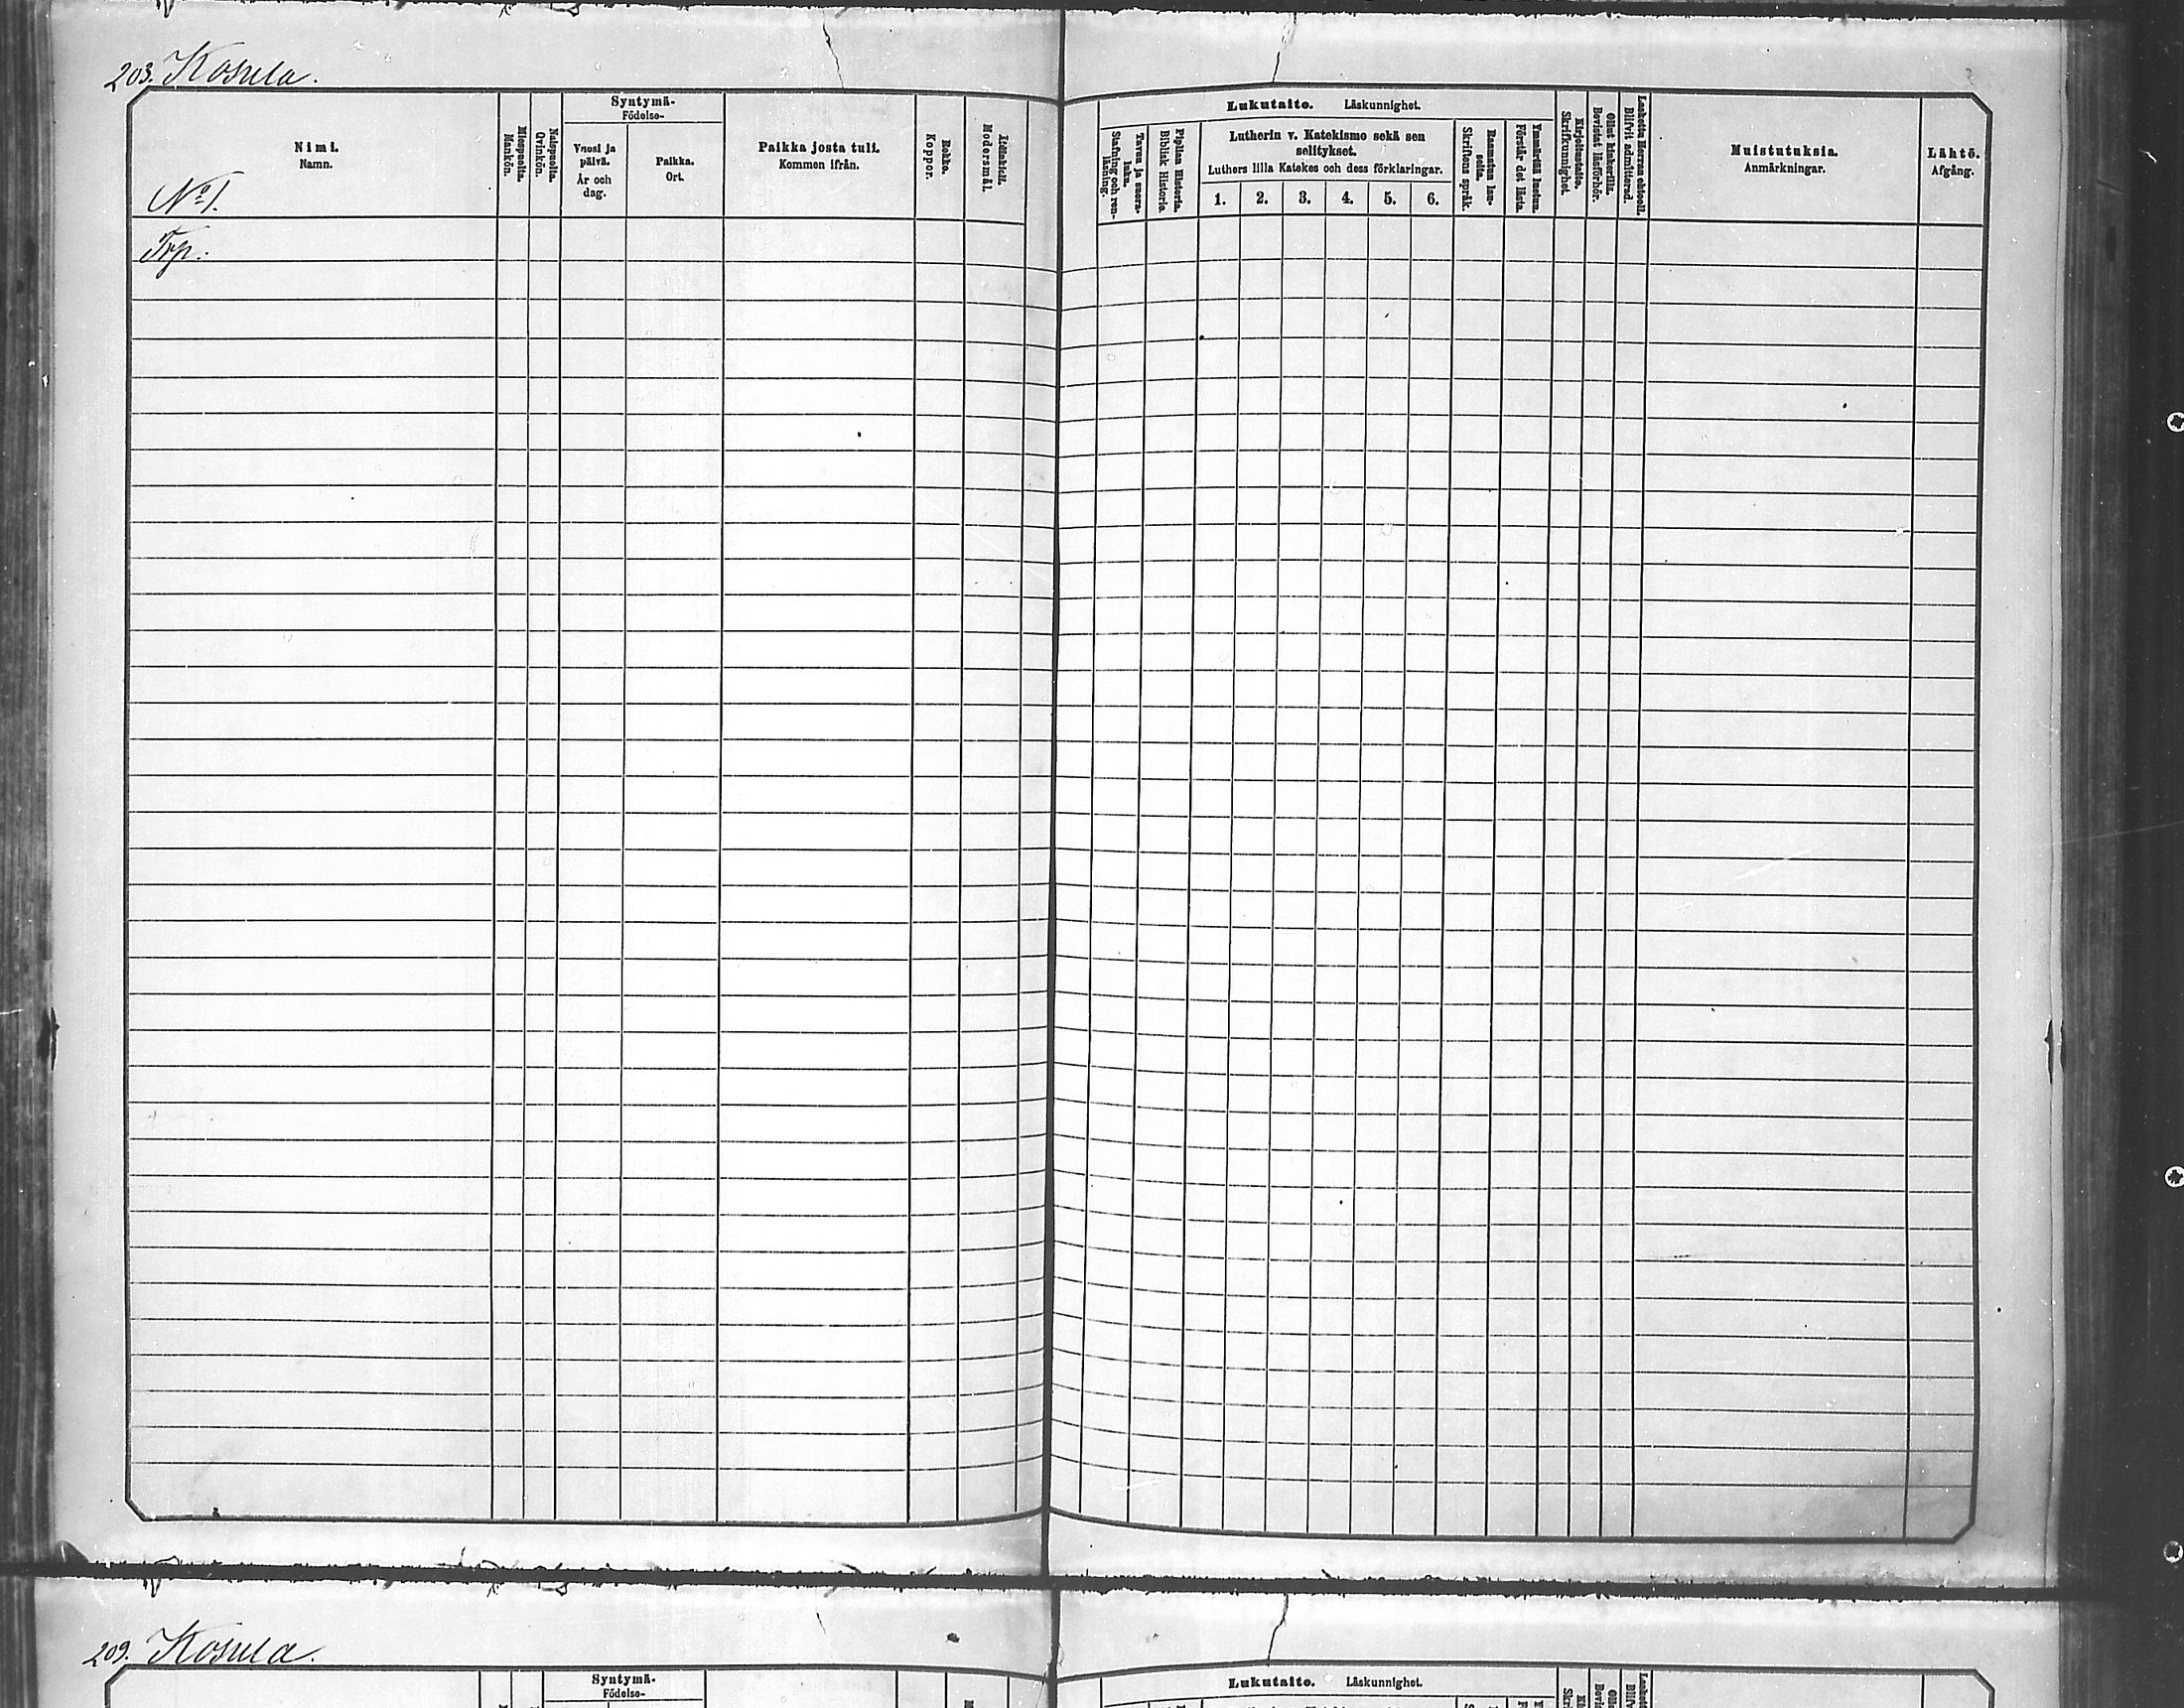 203. Kosula.
Nimi.
Namn.
No 1.
Miespuolia.
Mankön.
Naispuolia.
Qvinkön.
Syntymä-
Födelse-
Vuosi ja
päivä.
År och
dag.
Paikka.
Ort.
Paikka josta tuli.
Kommen ifrån.
Rokko.
Koppor.
Äidinkieli.
Modersmål.
Lukutaito. Läskunnighet.
Tavuu ja suora-
luku.
Stafning och ren-
läsning.
Piplian Historia.
Biblisk Historia.
Lutherin v. Katekismo sekä sen
selitykset.
Luthers lilla Katekes och dess förklaringar.
1. 2. 3. 4. 5. 6.
Raamatun lau-
seita.
Skriftens språk.
Ymmärtää luetun.
Förstår det lästa.
Kirjoitustaito.
Skrifkunnighet.
Ollut kinkerillä.
Bevistat läsförhör.
Laskettu Herran ehtool.
Blifvit admitterad.
Muistutuksia.
Anmärkningar.
Lähtö.
Afgång.
Trp.
209. Kosula.
Syntymä-
Födelse-
Lukutaito. Läskunnighet.